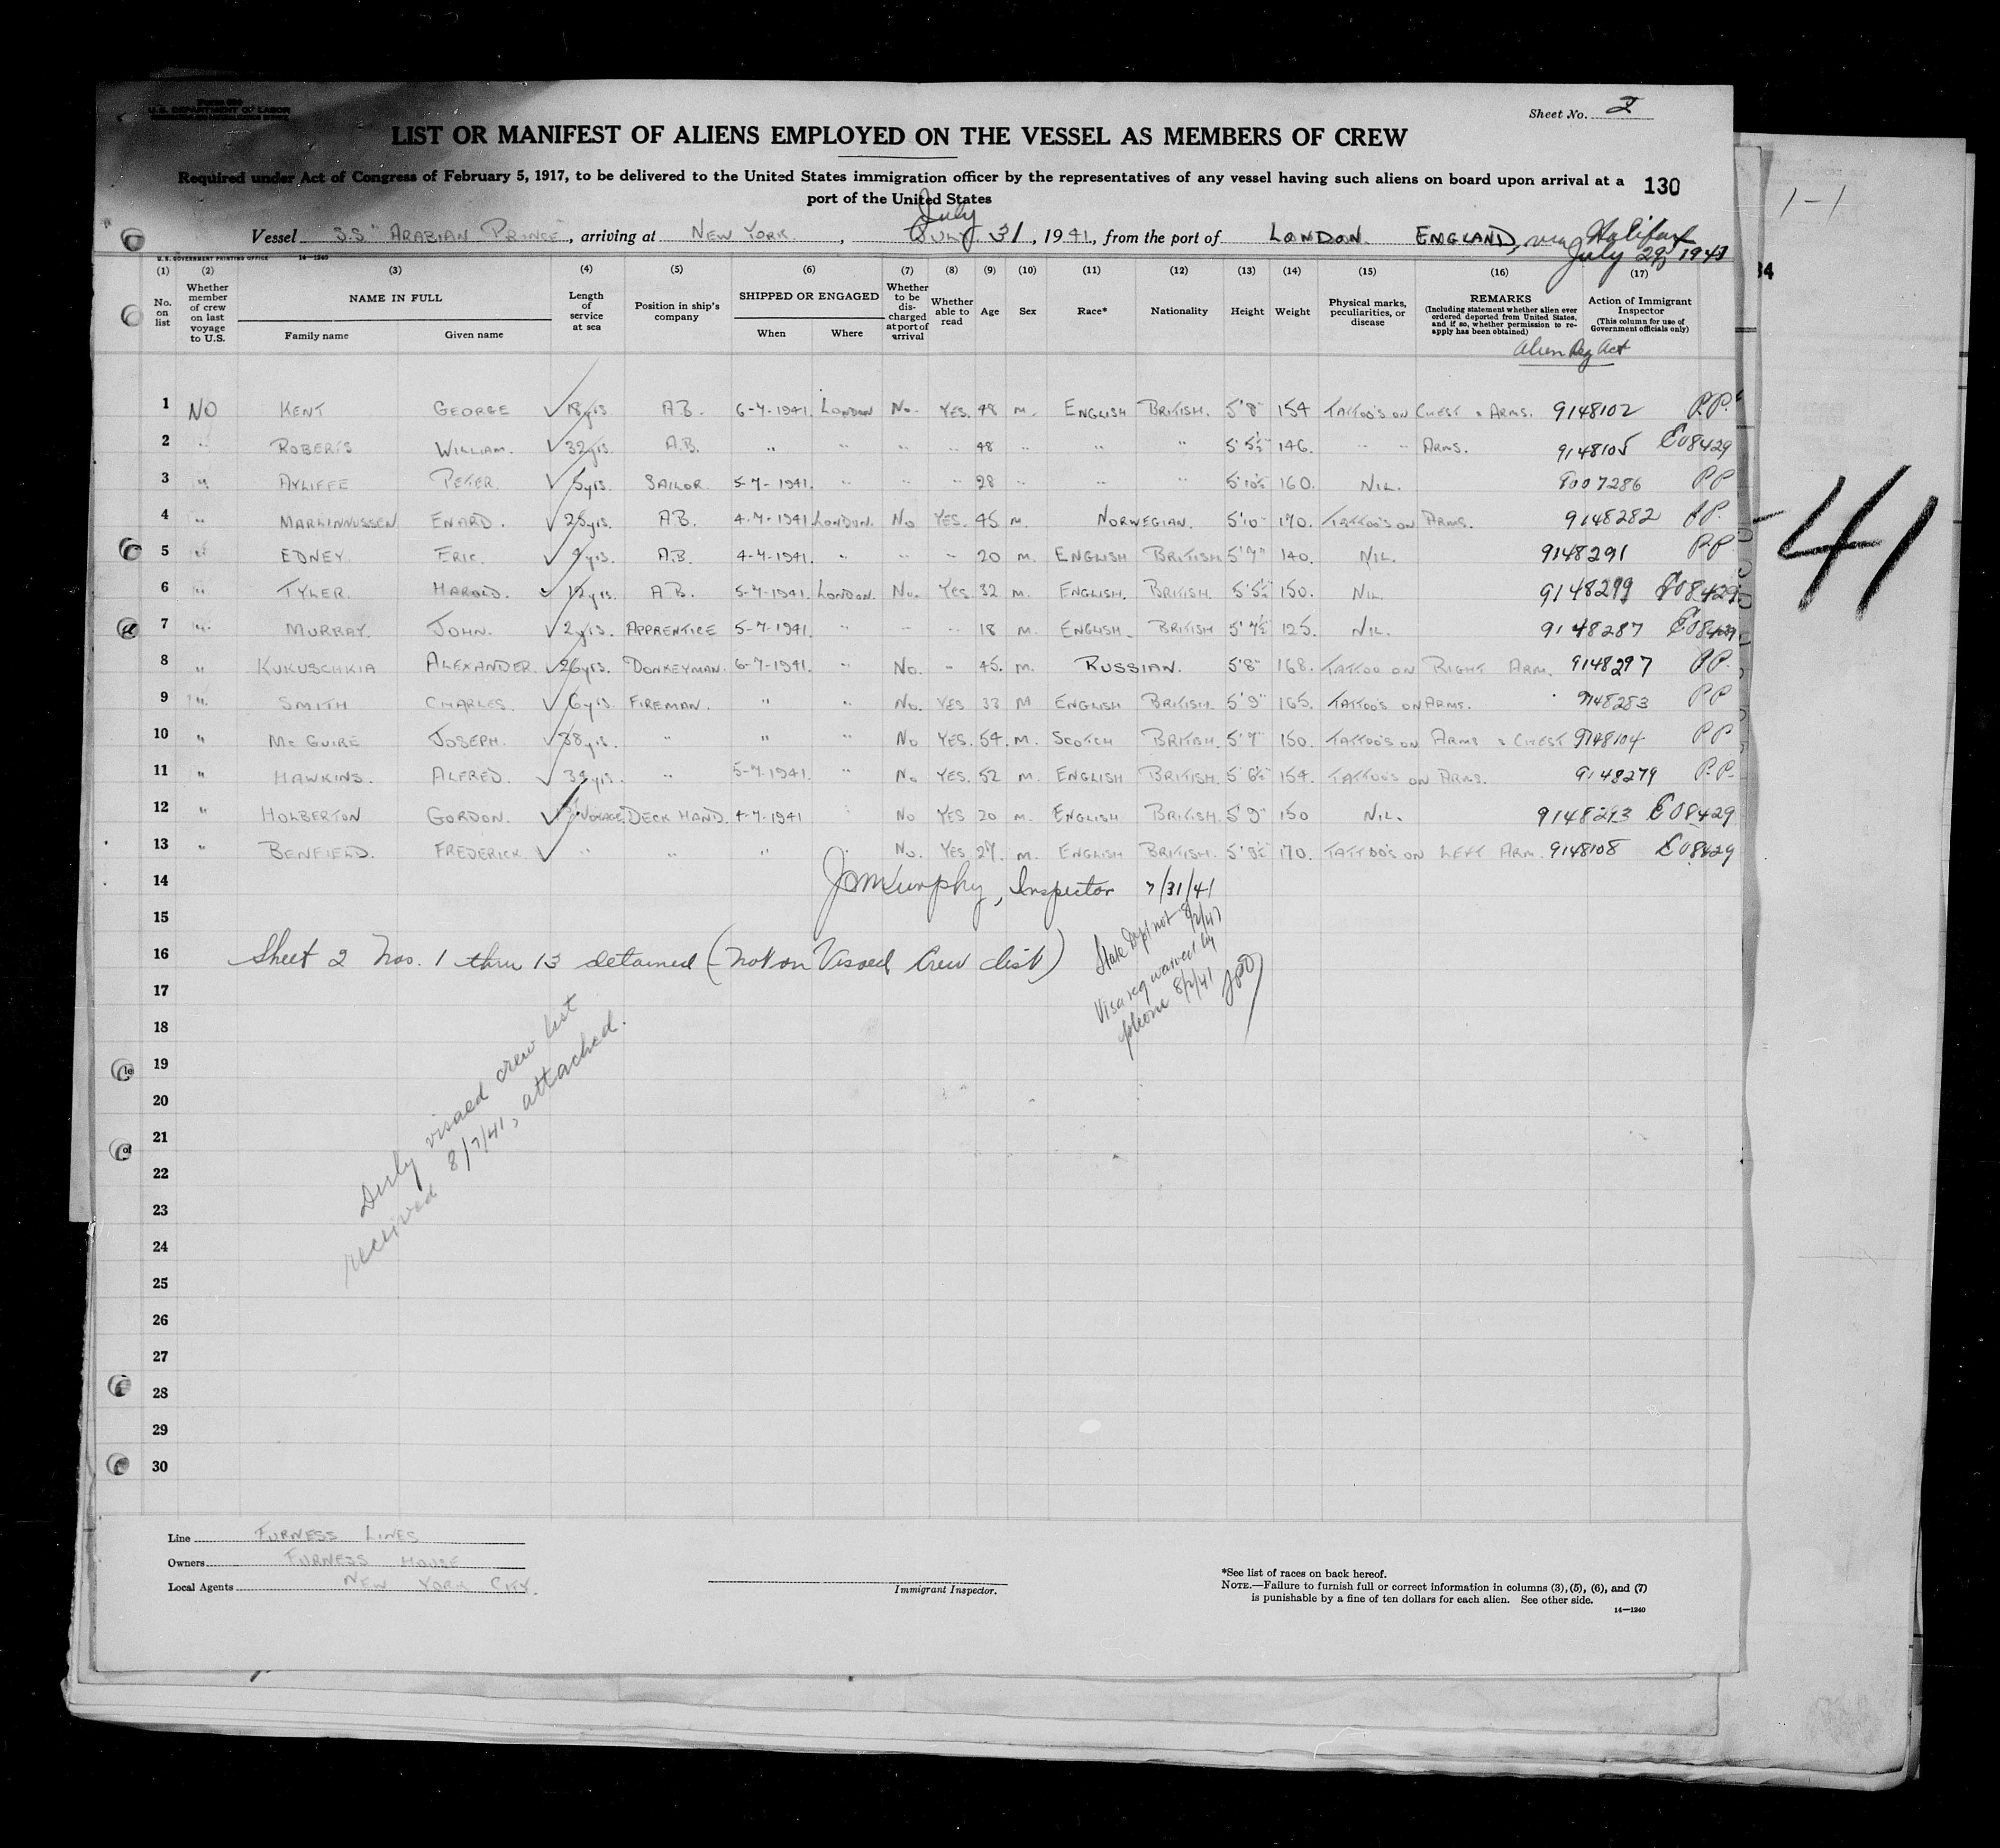 U.S. DEPARTMENT OF LABOR
Sheet No. 2
LIST OR MANIFEST OF ALIENS EMPLOYED ON THE VESSEL AS MEMBERS OF CREW
Required under Act of Congress of February 5, 1917, to be delivered to the United States immigration officer by the representatives of any vessel having such aliens on board upon arrival at a
port of the United States
130
July
Vessel S.S. "ARABIAN PRINCE, arriving at NEW YORK, JULY 31, 1941, from the port of LONDON ENGLAND, via Halifax
July 29, 1941
U.S. GOVERNMENT PRINTING OFFICE 14—1240
(1) (2) (3) (4) (5) (6) (7) (8) (9) (10) (11) (12) (13) (14) (15) (16) (17)
No. on list
Whether member of crew on last voyage to U.S.
NAME IN FULL
Family name Given name
Length of service at sea
Position in ship's company
SHIPPED OR ENGAGED
When Where
Whether to be discharged at port of arrival
Whether able to read
Age Sex Race* Nationality Height Weight
Physical marks, peculiarities, or disease
REMARKS
(Including statement whether alien ever ordered deported from United States, and if so, whether permission to reapply has been obtained)
Action of Immigrant Inspector
(This column for use of Government officials only)
Alien Reg Act
1 NO KENT GEORGE 18 yrs. A.B. 6-7-1941. LONDON No. YES. 48 m. ENGLISH BRITISH. 5'8" 154 TATTOO'S ON CHEST & ARMS. 9148102 P.P.
2 " ROBERTS WILLIAM. 32 yrs. A.B. " " " " 48 " " " 5'5½" 146. " " ARMS. 9148105 E08429
3 " AYLIFFE PETER. 5 yrs. SAILOR. 5-7-1941. " " " 28 " " " 5'10½ 160. NIL. 9007286 PP
4 " MARLINNUSSEN ENARD. 25 yrs. A.B. 4-7-1941 LONDON. No YES. 45 m. NORWEGIAN. 5'10" 170. TATTOO'S ON ARMS. 9148282 PP.
5 " EDNEY. ERIC. yrs. A.B. 4-7-1941. " " " 20 m. ENGLISH BRITISH 5'7" 140. NIL. 9148291 P.P.
6 " TYLER. HAROLD. 12 yrs. A B. 5-7-1941. LONDON. No. YES 32 m. ENGLISH. BRITISH. 5'5½ 150. NIL. 9148299 E08429
7 " MURRAY. JOHN. 2 yrs. APPRENTICE 5-7-1941. " " " 18 m. ENGLISH. BRITISH 5'7½ 125. NIL. 9148287 E08429
8 " KUKUSCHKIA ALEXANDER. 26 yrs. DONKEYMAN. 6-7-1941. " No. " 45. m. RUSSIAN. 5'8" 168. TATTOO ON RIGHT ARM. 9148297 PP.
9 " SMITH CHARLES. 6 yrs. FIREMAN. " " No. YES 33 M ENGLISH BRITISH. 5'9" 165. TATTOO'S ON ARMS. 9148283 PP
10 " Mc GUIRE JOSEPH. 38 yrs. " " " No YES. 54. m. SCOTCH BRITISH. 5'7" 150. TATTOO'S ON ARMS & CHEST 9148104 PP
11 " HAWKINS. ALFRED. 34 yrs. " 5-7-1941. " No YES. 52 m. ENGLISH BRITISH. 5'6½ 154. TATTOO'S ON ARMS. 9148279 P.P.
12 " HOLBERTON GORDON. 1st VOYAGE. DECK HAND. 4-7-1941 " No YES 20 m. ENGLISH BRITISH. 5'9" 150 NIL. 9148293 E08429
13 " BENFIELD. FREDERICK. " " " " No. YES 27. m. ENGLISH BRITISH. 5'9½ 170. TATTOO'S ON LEFT ARM. 9148108 E08429
14 J M Murphy, Inspector 7/31/41
15
16 Sheet 2 Nos. 1 thru 13 detained (- not on Visaed Crew List)
State Dept not 8/2/41
Visa req waived by
phone 8/2/41
17
18
19
20
21
22
23
24
25
26
27
28
29
30
Duly visaed crew list
received 8/7/41, attached.
Line FURNESS LINES
Owners FURNESS HOUSE
Local Agents NEW YORK CITY.
Immigrant Inspector.
*See list of races on back hereof.
NOTE.—Failure to furnish full or correct information in columns (3), (5), (6), and (7)
is punishable by a fine of ten dollars for each alien. See other side.
14—1240
1-1
34
-41